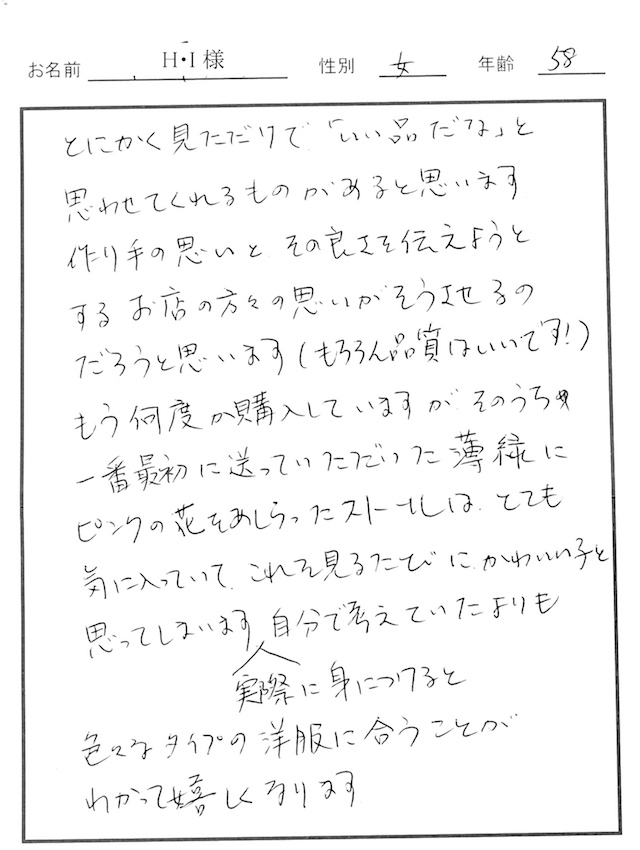 お名前 H・I 様 性別 女 年齢 58
とにかく見ただけで「いい品だな」と
思わせてくれるものがあると思います
作り手の思いと その良さを伝えようと
する お店の方々の思いがそうさせるの
だろうと思います(もちろん品質はいいです!)
もう何度か購入していますが そのうち
一番最初に送っていただいた薄緑に
ピンクの花をあしらったストールは、とても
気に入っていて、これを見るたびに、かわいい子と
思ってしまいます 自分で考えていたよりも
実際に身につけると
色々なタイプの洋服に合うことが
わかって嬉しくなります